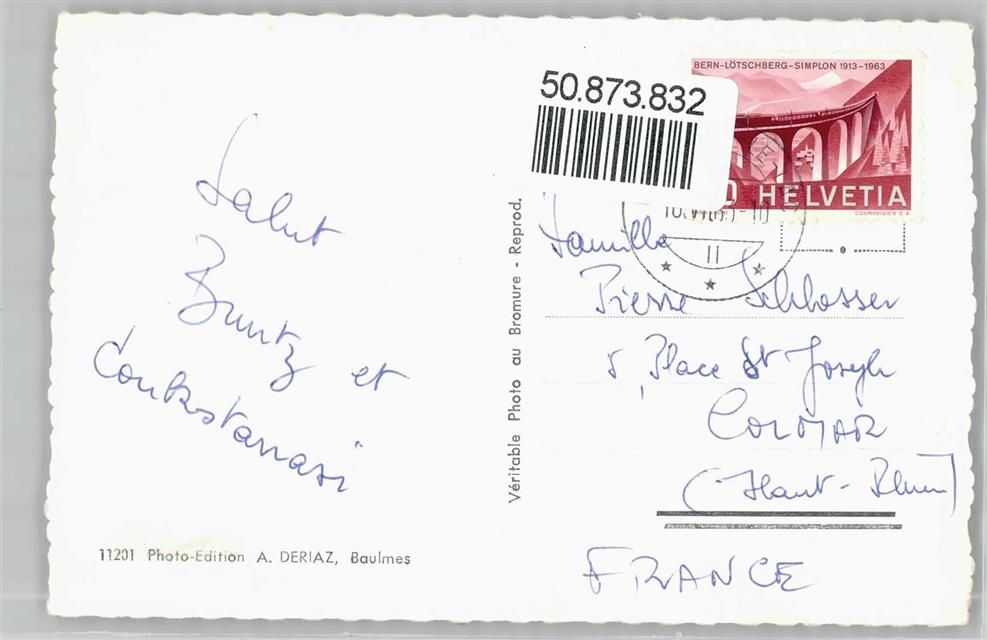 Salut
Buntz et
50.873.832
BERN-LÖTSCHBERG-SIMPLON 1913-1963
0 HELVETIA
COURVOISIER S.A.
II
Famille
Pierre Schlosser
5, Place St Joseph
COLMAR
(Haut-Rhin)
FRANCE
Véritable Photo au Bromure - Reprod.
11201 Photo-Edition A. DERIAZ, Baulmes